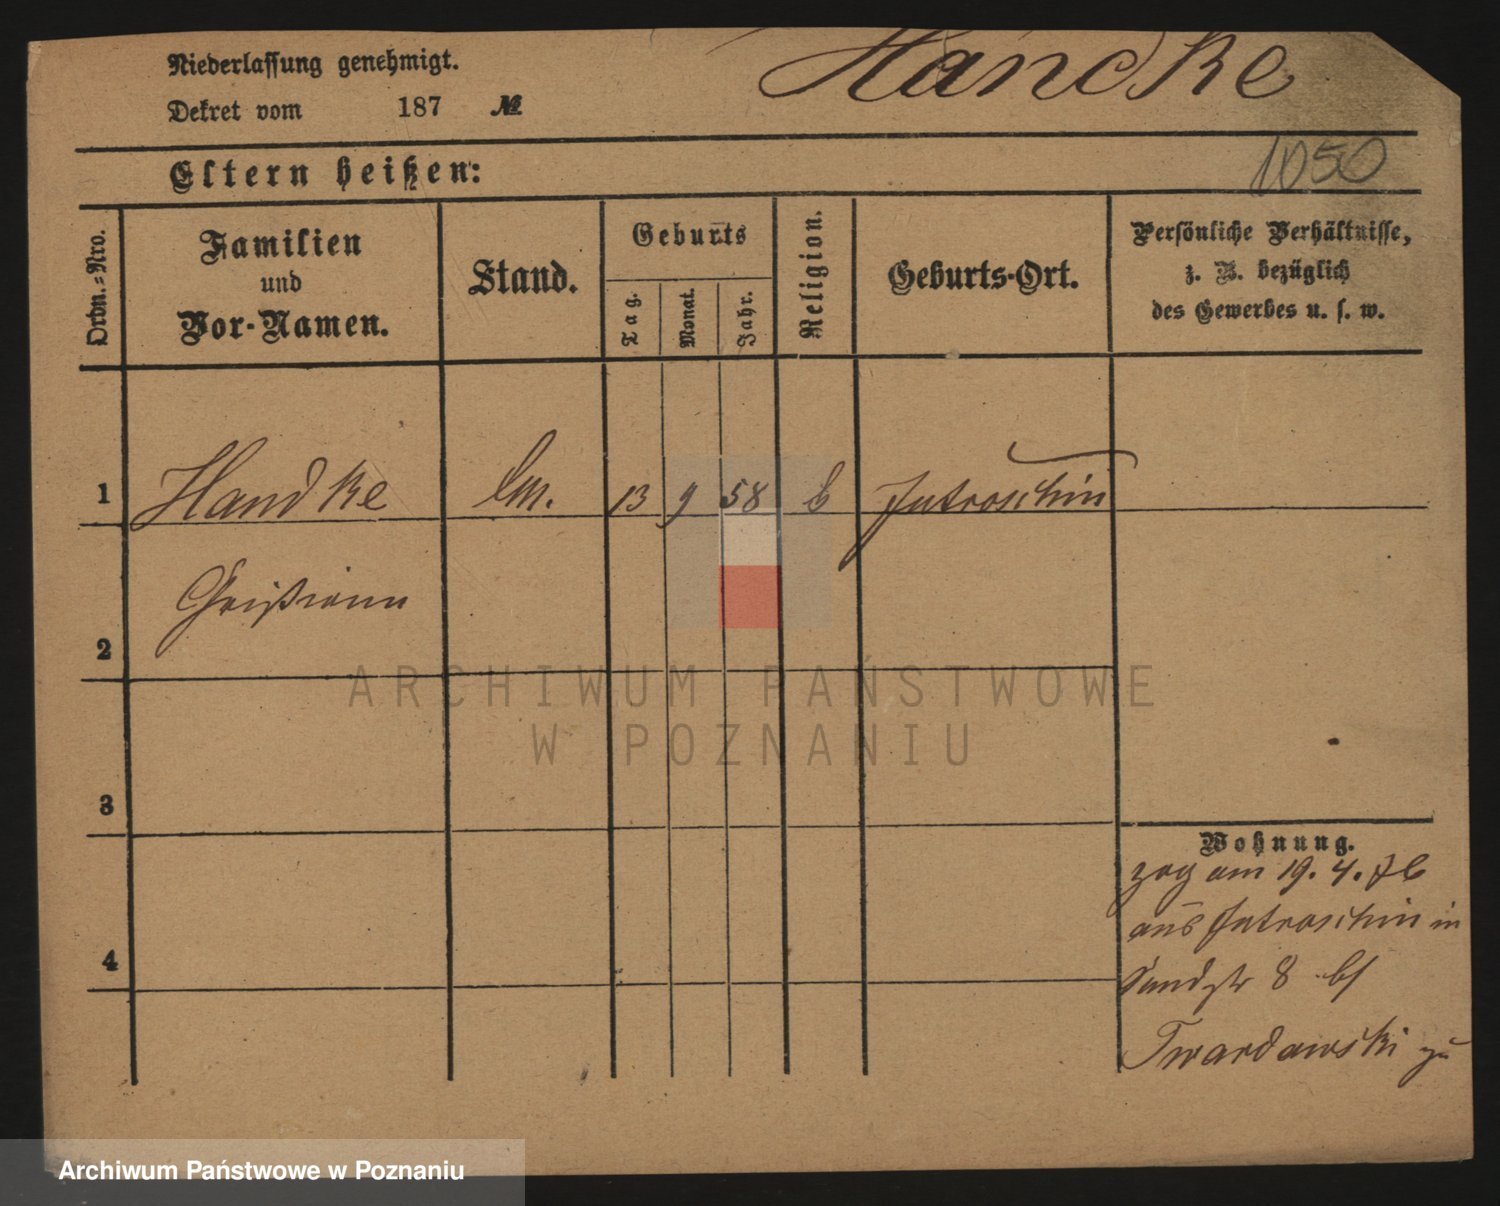 Niederlassung genehmigt.
Hancke
Dekret vom 187 №
1050
Eltern heißen:
Ordn.-Nro.
Familien
und
Vor-Namen.
Stand.
Geburts
Tag.
Monat.
Jahr.
Religion.
Geburts-Ort.
Persönliche Verhältnisse,
z. B. bezüglich
des Gewerbes u. s. w.
1 Handke 13 9 58 Jutroschin
2
3
4
Wohnung.
zog am 19. 4. 76
aus Jutroschin in
Sandstr 8 bei
Twardowski zu
ARCHIWUM PAŃSTWOWE
W POZNANIU
Archiwum Państwowe w Poznaniu